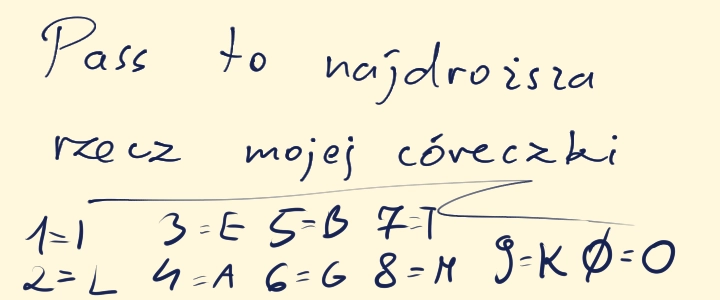 Pass to najdroższa
rzecz mojej córeczki
1=I 3=E 5=B 7=T
2=L 4=A 6=G 8=M 9=K Ø=O